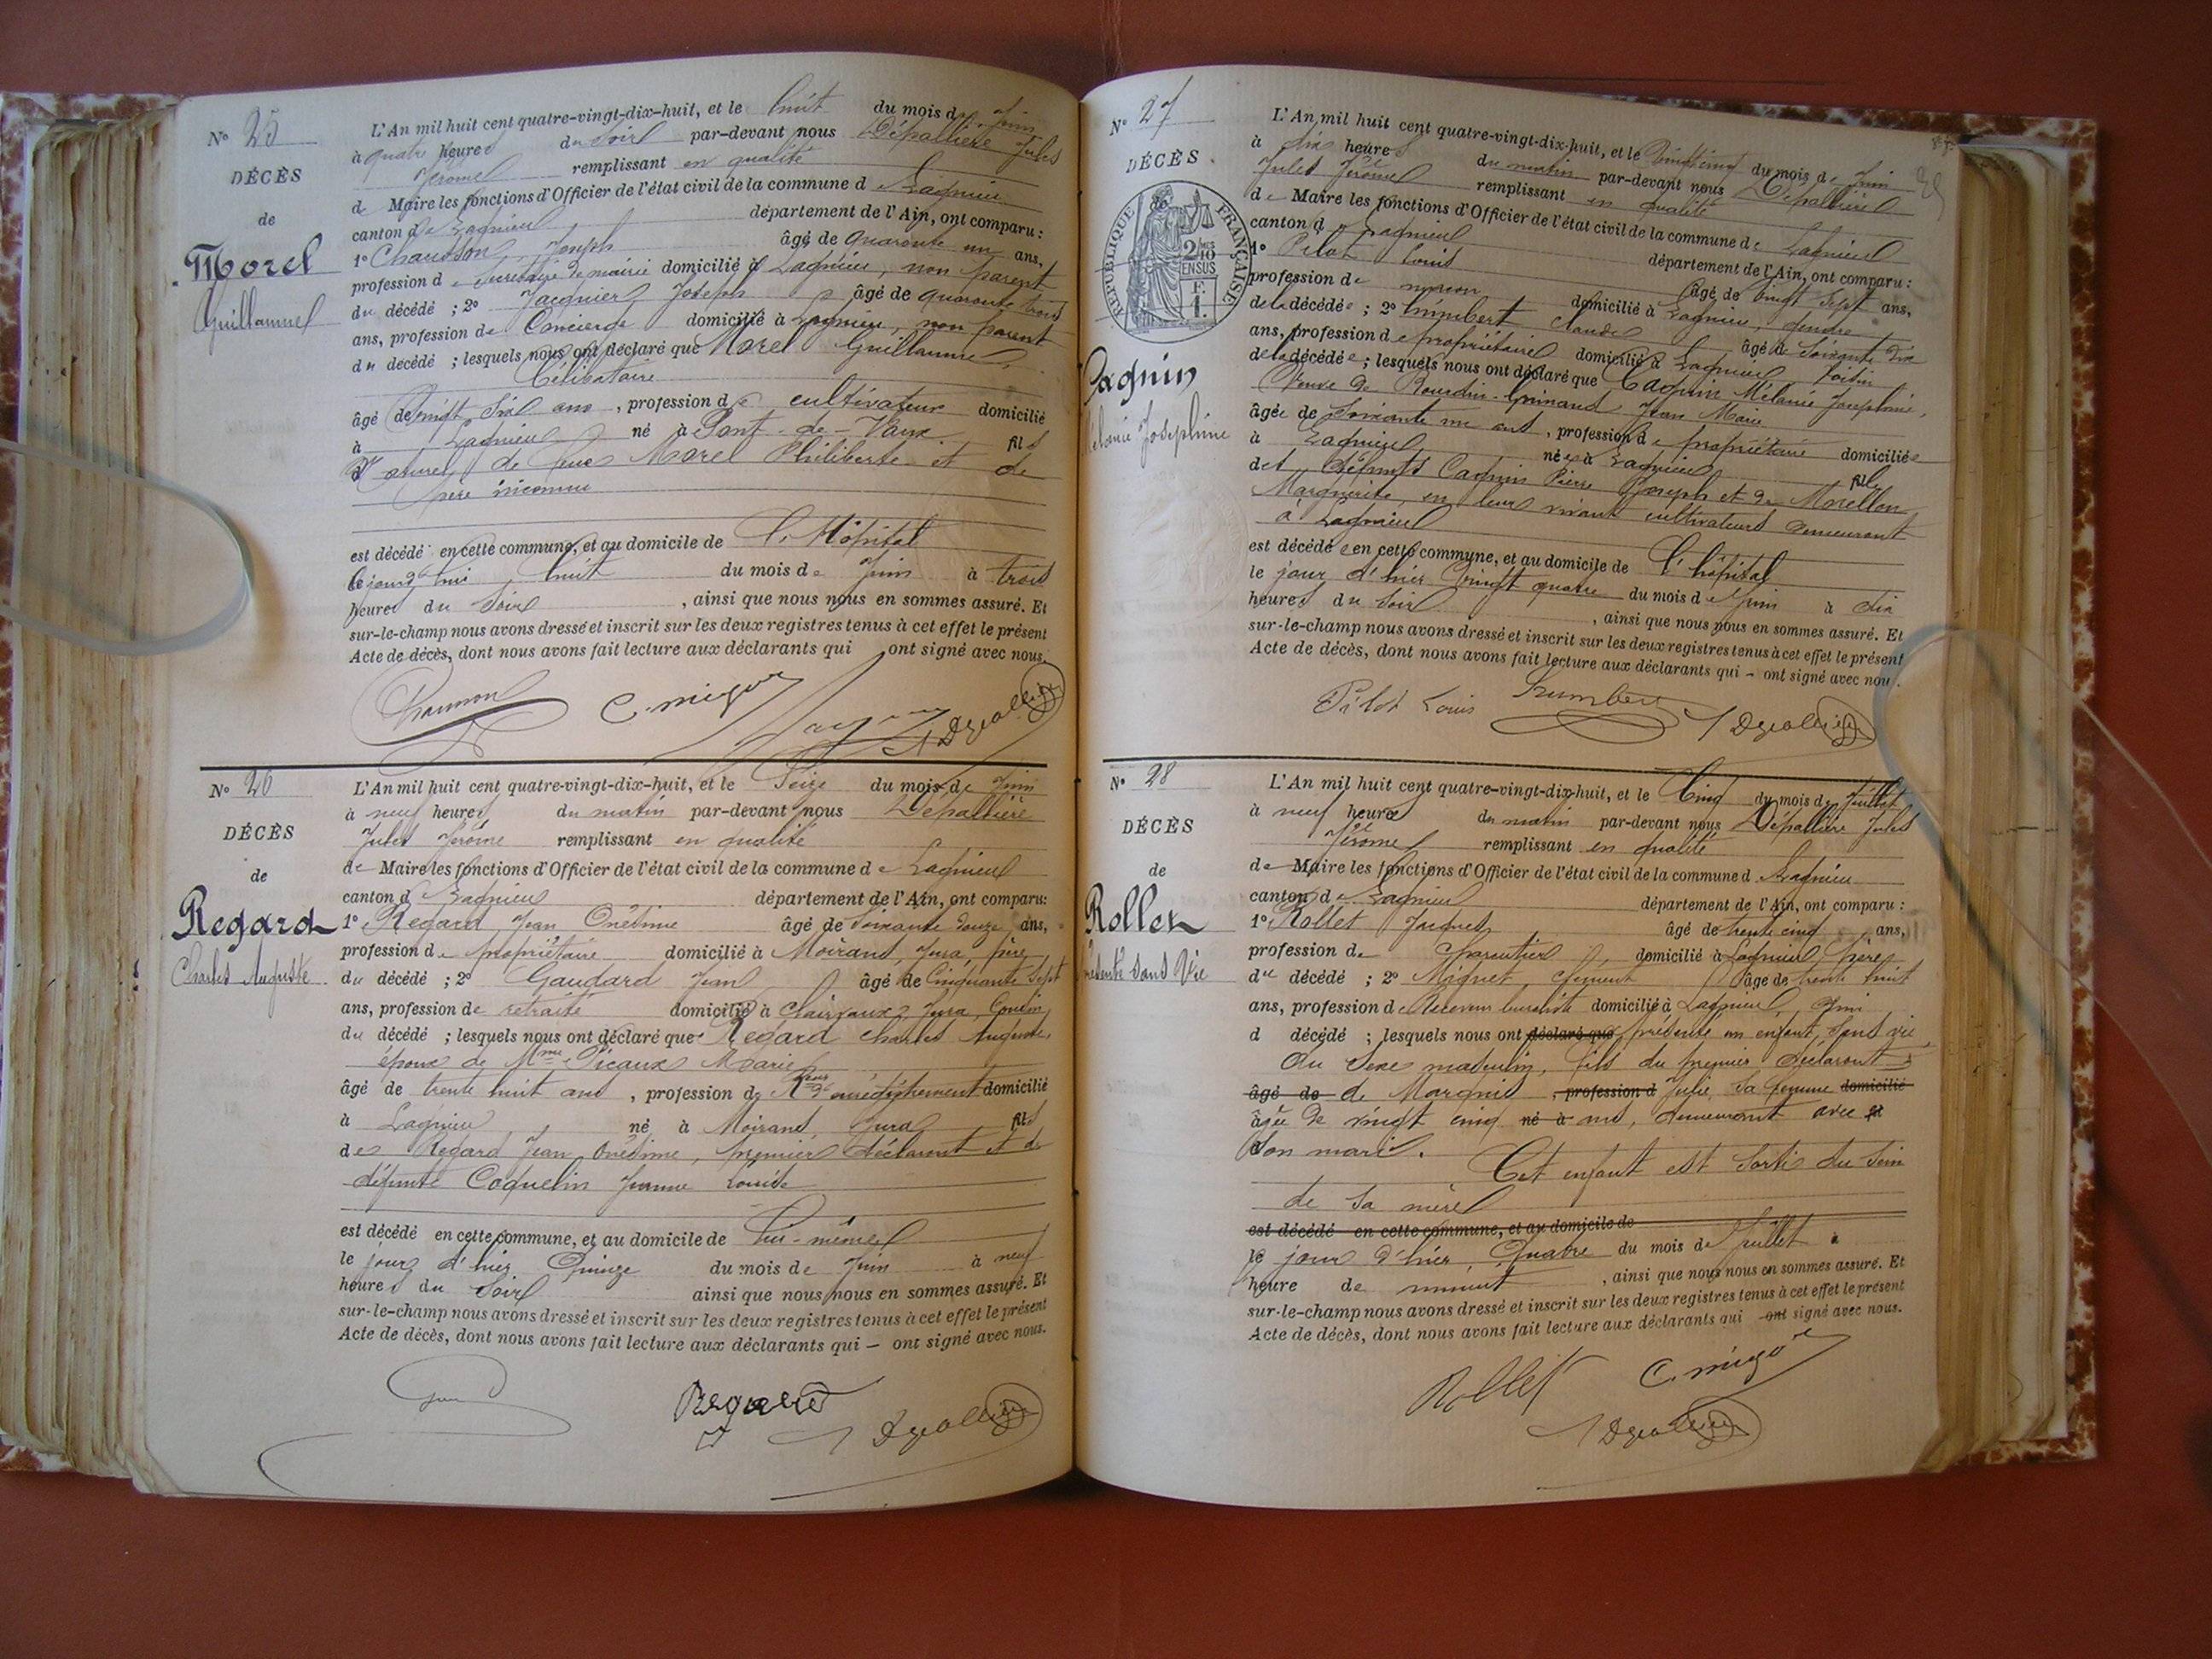 N° 25
DÉCÈS
de
Morel
Guillaume
L'An mil huit cent quatre-vingt-dix-huit, et le huit du mois de Juin
à quatre heures du soir par-devant nous Dépallière Jules
Jérome remplissant en qualité
de Maire les fonctions d'Officier de l'état civil de la commune d Lagnieu
canton de Lagnieu département de l'Ain, ont comparu :
1° Joseph âgé de quarante un ans,
profession de Secrétaire de mairie domicilié à Lagnieu, non parent
du décédé ; 2° Jacquier Joseph âgé de quarante trois
ans, profession de Concierge domicilié à Lagnieu, non parent
du décédé ; lesquels nous ont déclaré que Morel Guillaume,
Célibataire
âgé de vingt six ans, profession de cultivateur domicilié
à Lagnieu né à Pont-de-Vaux fils
Naturel de feue Morel Philiberte et de
père inconnu
est décédé en cette commune, et au domicile de l'Hôpital
le jourd'hui huit du mois de Juin à trois
heures du soir, ainsi que nous nous en sommes assuré. Et
sur-le-champ nous avons dressé et inscrit sur les deux registres tenus à cet effet le présent
Acte de décès, dont nous avons fait lecture aux déclarants qui ont signé avec nous.
N° 26
DÉCÈS
de
Regard
Charles Auguste
L'An mil huit cent quatre-vingt-dix-huit, et le Seize du mois de Juin
à neuf heures du matin par-devant nous Dépallière
Jules Jérôme remplissant en qualité
de Maire les fonctions d'Officier de l'état civil de la commune de Lagnieu
canton de Lagnieu département de l'Ain, ont comparu :
1° Regard Jean Onésime âgé de soixante douze ans,
profession de propriétaire domicilié à Moirans, Jura, père
du décédé ; 2° Gaudard Jean âgé de Cinquante sept
ans, profession de retraité domicilié à Clairvaux, Jura, Cousin
du décédé ; lesquels nous ont déclaré que Regard Charles Auguste,
époux de Mme Picaux Marie
âgé de trente huit ans, profession de Rcveur d'enregistrement domicilié
à Lagnieu né à Moirans, Jura fils
de Regard Jean Onésime, premier déclarant et de
défunte Coquelin Jeanne Louise
est décédé en cette commune, et au domicile de lui-même
le jour d'hier Quinze du mois de Juin à neuf
heures du Soir ainsi que nous nous en sommes assuré. Et
sur-le-champ nous avons dressé et inscrit sur les deux registres tenus à cet effet le présent
Acte de décès, dont nous avons fait lecture aux déclarants qui – ont signé avec nous.
Regard
N° 27
DÉCÈS
RÉPUBLIQUE FRANÇAISE
2/10 EN SUS
F. 1.
Cagnin
Mélanie Joséphine
L'An mil huit cent quatre-vingt-dix-huit, et le Vingt cinq du mois de Juin
à dix heures du matin par-devant nous Dépallière
Jules Jérôme remplissant en qualité
de Maire les fonctions d'Officier de l'état civil de la commune de Lagnieu
canton d Lagnieu département de l'Ain, ont comparu :
1° Pilot Louis âgé de vingt sept ans,
profession de maçon domicilié à Lagnieu, Gendre
de la décédée ; 2° Humbert Claude âgé de Soixante dix
ans, profession de propriétaire domicilié à Lagnieu Voisin
de la décédée ; lesquels nous ont déclaré que Cagnin Mélanie Joséphine,
Veuve de Bourdin-Grimaud Jean Marie
âgée de Soixante un ans, profession de propriétaire domiciliée
à Lagnieu née à Lagnieu fille
des défunts Cagnin Pierre Joseph et de Morellon
Marguerite, en leur vivant cultivateurs demeurant
à Lagnieu
est décédée en cette commune, et au domicile de l'hôpital
le jour d'hier Vingt quatre du mois de Juin à dix
heures du Soir, ainsi que nous nous en sommes assuré. Et
sur-le-champ nous avons dressé et inscrit sur les deux registres tenus à cet effet le présent
Acte de décès, dont nous avons fait lecture aux déclarants qui – ont signé avec nou.
Pilot Louis Humbert
N° 28
DÉCÈS
de
Rollet
Présenté sans Vie
L'An mil huit cent quatre-vingt-dix-huit, et le Cinq du mois de Juillet
à neuf heures du matin par-devant nous Dépallière Jules
Jérôme remplissant en qualité
de Maire les fonctions d'Officier de l'état civil de la commune d Lagnieu
canton de Lagnieu département de l'Ain, ont comparu :
1° Rollet Jacques âgé de trente cinq ans,
profession de Charcutier domicilié à Lagnieu Père
du décédé ; 2° Miguet Clément âgé de trente huit
ans, profession de Receveur buraliste domicilié à Lagnieu, Ami
d décédé ; lesquels nous ont déclaré que présenté un enfant sans vie
du Sexe masculin, fils du premier déclarant
âgé de de Marquis, profession d Julie, sa femme domicilié
âgée de vingt cinq né à ans, demeurant avec
Son mari.
Cet enfant est sorti du sein
de sa mère
est décédé en cette commune, et au domicile de
le jour d'hier, Quatre du mois de Juillet à
heure de minuit, ainsi que nous nous en sommes assuré. Et
sur-le-champ nous avons dressé et inscrit sur les deux registres tenus à cet effet le présent
Acte de décès, dont nous avons fait lecture aux déclarants qui – ont signé avec nous.
Rollet